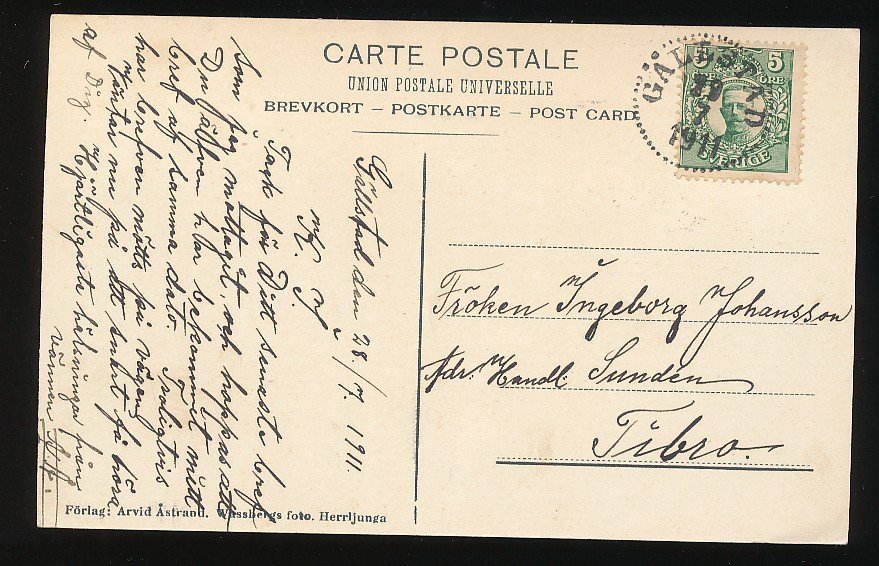 CARTE POSTALE
UNION POSTALE UNIVERSELLE
BREVKORT – POSTKARTE – POST CARD
GÄLLSTAD
29
7
1911
5 5
ÖRE
SVERIGE
Gällstad den 28/7. 1911.
K. J.
Tack för Ditt senaste bref
som jag mottagit, och hoppas att
Du äfven har bekommet mitt
bref af samma dato. Troligtvis
har brefven mötts på vägen,
Väntar nu på att snart få höra
af Dig. Hjärtligaste hälsningar från
vännen
Fröken Ingeborg Johansson
Adr. Handl. Sunden
Tibro.
Förlag: Arvid Åstrand. Wassbergs foto. Herrljunga